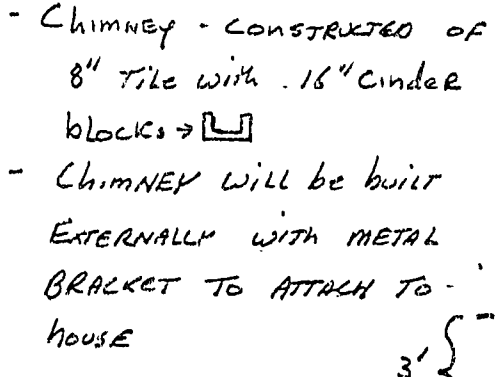 - Chimney - constructed of
8" Tile with 16" Cinder
blocks →
- Chimney will be built
Externally with metal
Bracket to attach to
house
3'